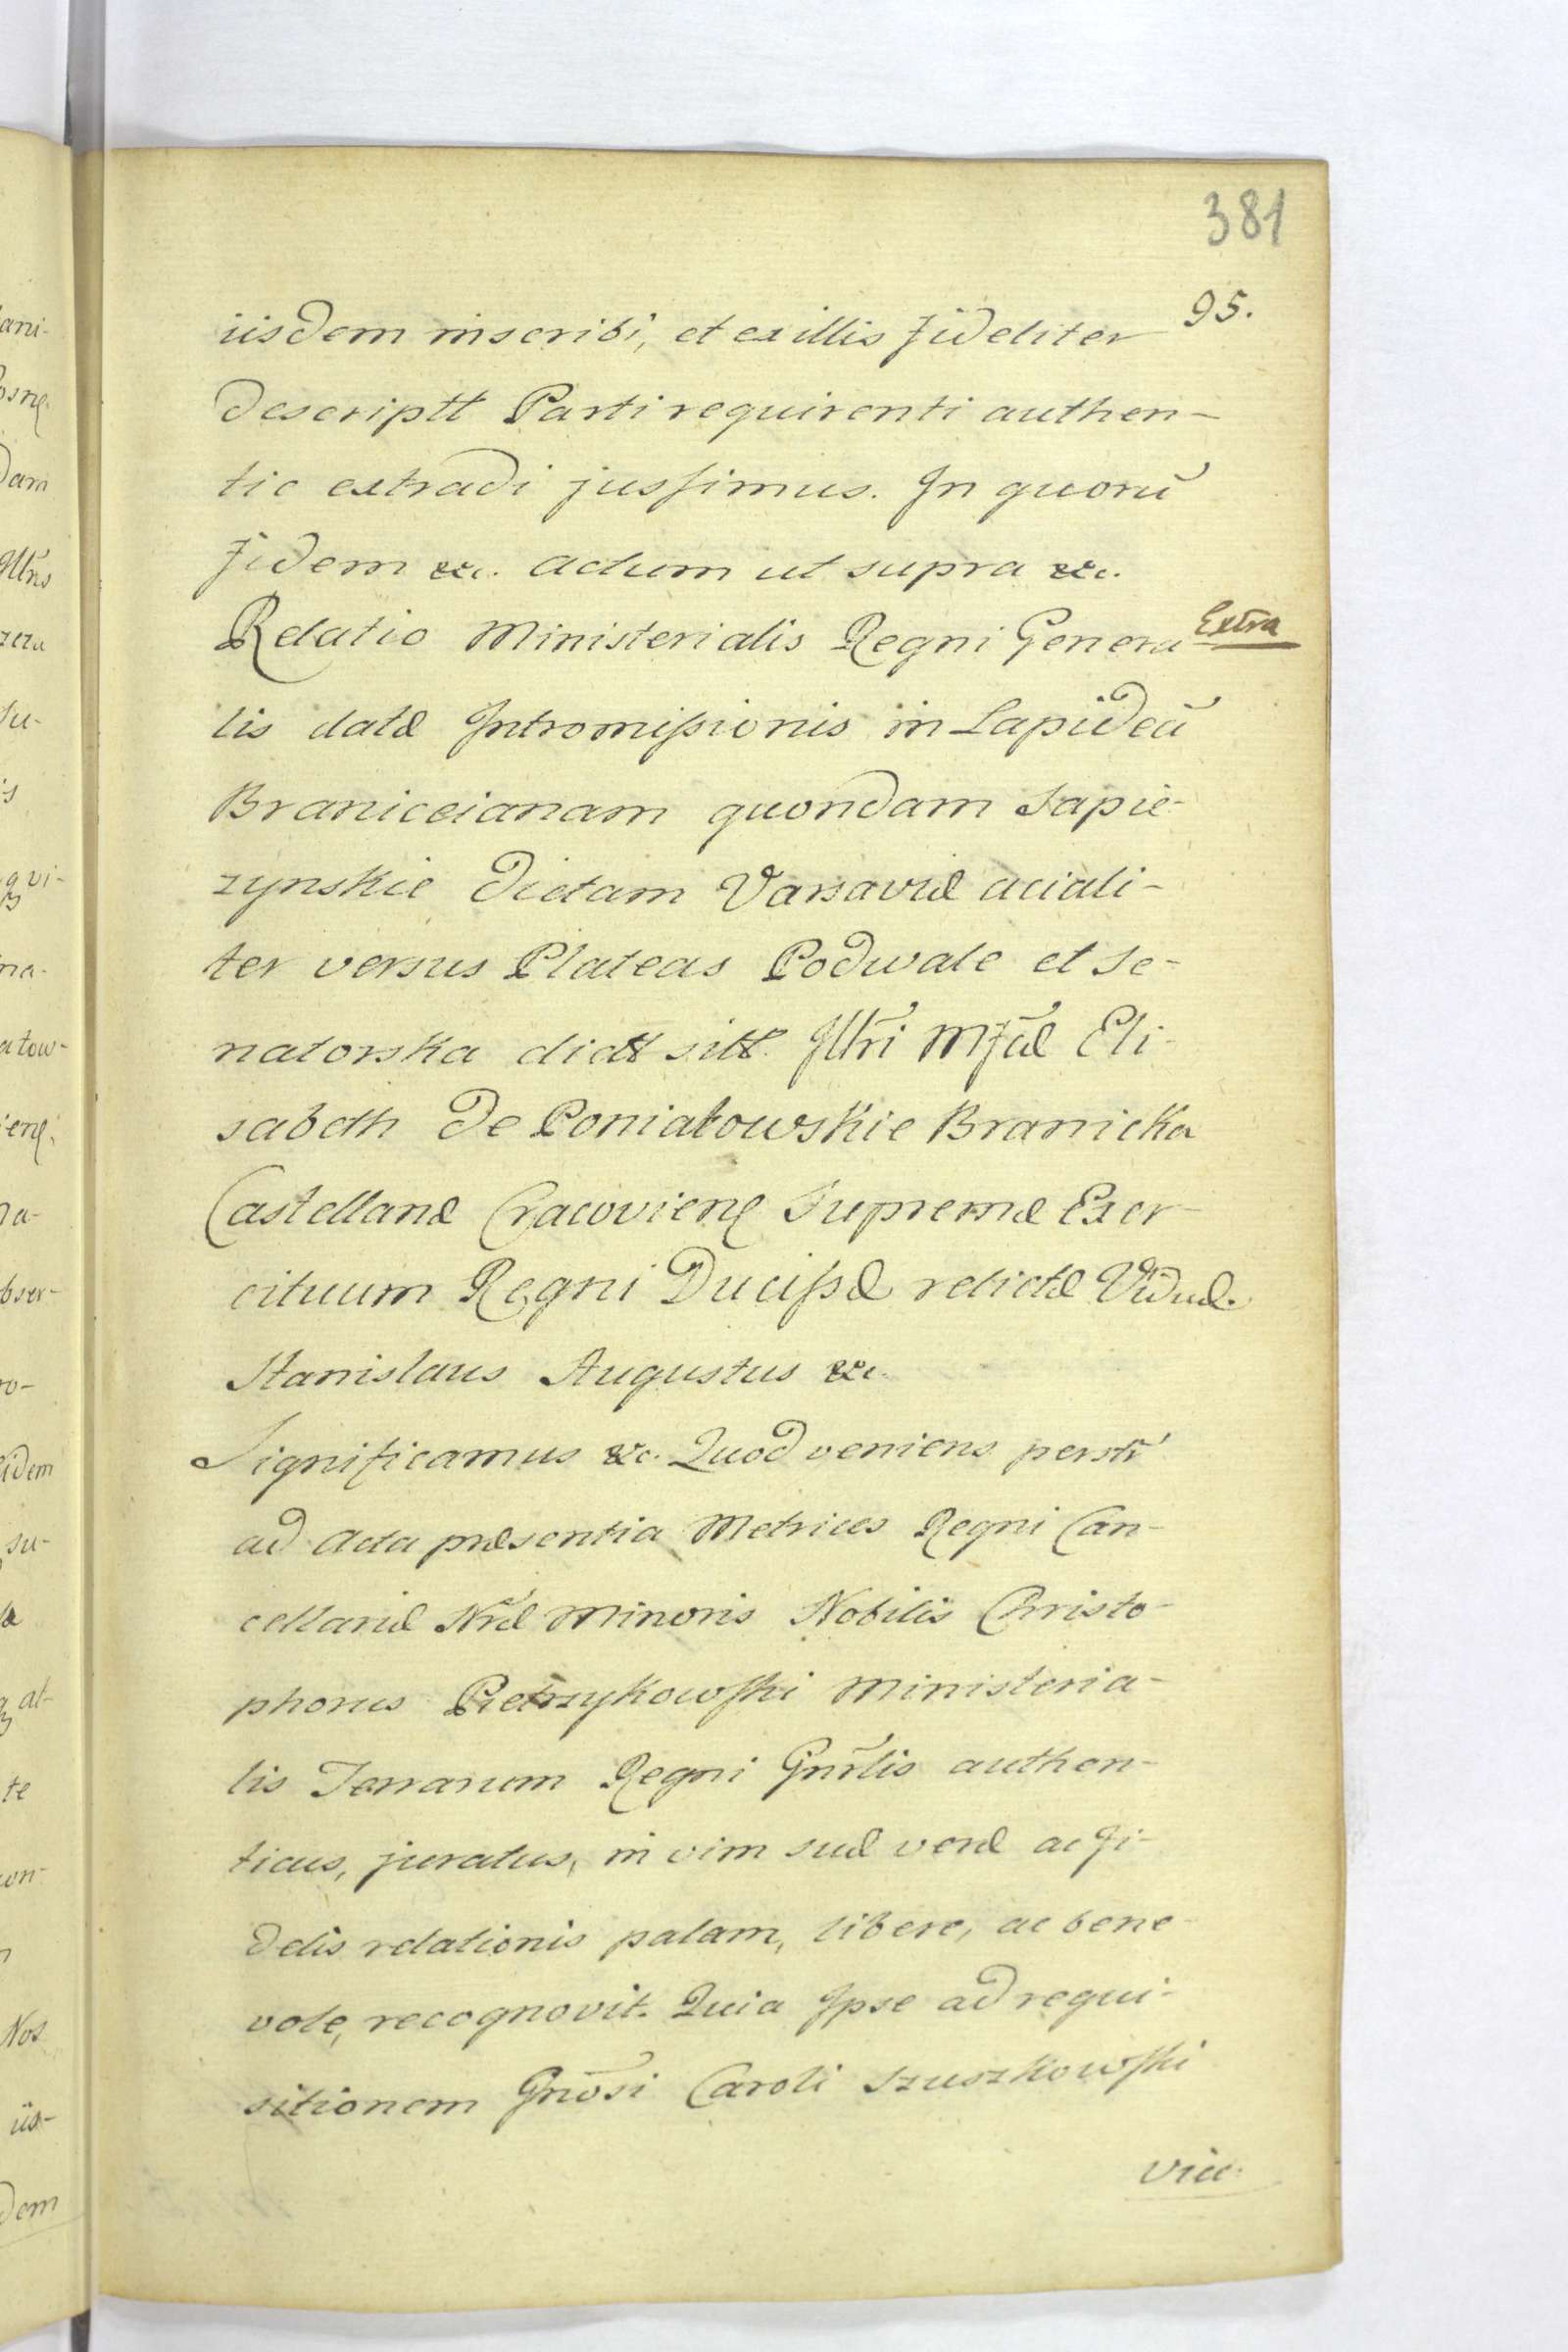 381
95.
iisdem inscribi, et ex illis fideliter
descriptt Parti requirenti authen-
tic extradi jussimus. In quorū
fidem &c. actum ut supra &c.
Relatio Ministerialis Regni Genera Extra
lis datæ Intromissionis in Lapideā
Braniceianam quondam Sapie-
zynskie dictam Varsaviæ aciali-
ter versus Plateas Podwale et Se-
natorska dictt sitt. Illri Mfcæ Eli-
sabeth de Poniatowskie Branicka
Castellanæ Cracovienę Supremæ Exer-
cituum Regni Ducissæ relictæ Viduæ.
Stanislaus Augustus &c.
Significamus &c. Quod veniens persłr
ad Acta præsentia Metrices Regni Can-
cellariæ Nræ Minoris Nobilis Christo-
phorus Pietrzykowski Ministeria-
lis Terrarum Regni Gnrlis authen-
ticus, juratus, in vim suæ veræ ac fi-
delis relationis palam, libere, ac bene-
vole, recognovit. Quia Ipse ad requi-
sitionem Gnosi Caroli Szuszkowski
vice-
ani-
dam
Illris
zera
su-
is
qvi-
na-
atow-
ienę.
na-
bser-
ro-
idem
su-
al-
te
con-
Nos
iis-
dem